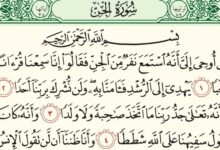 سُورَةُ الجِنِّ
بِسْمِ اللَّهِ الرَّحْمَٰنِ الرَّحِيمِ
أُوحِيَ إِلَيَّ أَنَّهُ اسْتَمَعَ نَفَرٌ مِنَ الْجِنِّ فَقَالُوا إِنَّا سَمِعْنَا قُرْءَانًا
يَهْدِي إِلَى الرُّشْدِ فَآمَنَّا بِهِ وَلَنْ نُشْرِكَ بِرَبِّنَا أَحَدًا ٢
وَأَنَّهُ تَعَالَى جَدُّ رَبِّنَا مَا اتَّخَذَ صَاحِبَةً وَلَا وَلَدًا ٣ وَأَنَّهُ كَانَ
سَفِيهُنَا عَلَى اللَّهِ شَطَطًا ٤ وَأَنَّا ظَنَنَّا أَنْ لَنْ تَقُولَ الْإِنْسُ